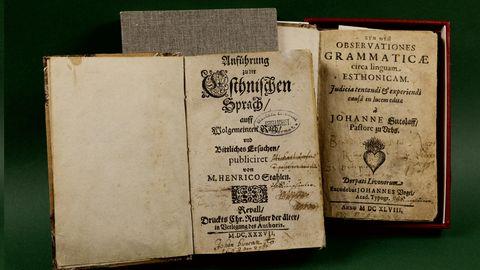 Anführung
zu der
Esthnischen
Sprach/
auff
Wolgemeinten Raht/
und
Bittliches Ersuchen/
publiciret
von
M. HENRICO Stahlen.
Revall/
Druckts Chr. Reusner der älter/
in Verlegung des Authoris.
M.DC.XXXVII.
OBSERVATIONES
GRAMMATICÆ
circa linguam
ESTHONICAM.
Judicia tentandi & experiendi
causâ in lucem editæ
à
JOHANNE Gutslaff/
Pastore zu Urbs.
Dorpati Livonorum
Excudebat JOHANNES Vogel/
Acad. Typogr.
Anno M DC XLVIII.